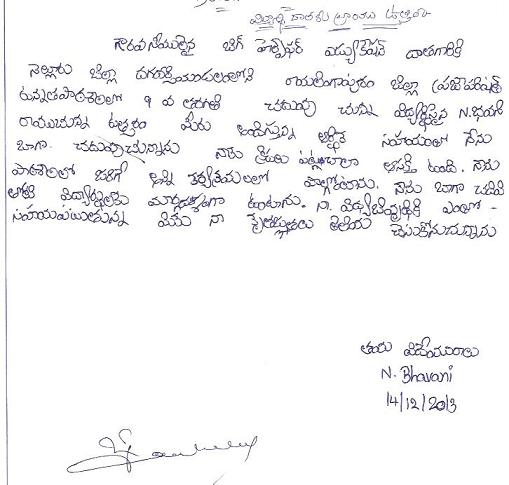 విద్యార్థి దాతకు వ్రాయు ఉత్తరం
గౌరవనీయులైన బిగ్ హెల్ప్ ఫర్ ఎడ్యుకేషన్ దాతగారికి
నెల్లూరు జిల్లా దగదర్తి మండలంలోని జిల్లా ప్రజాపరిషత్
ఉన్నతపాఠశాలలో 9 వ తరగతి చదువు చున్న విద్యార్థినైన N.భవాని
రాయుచున్న ఉత్తరం మీరు అందిస్తున్న ఆర్థిక సహాయంతో నేను
బాగా చదువుచున్నాను నాకు పట్ల చాలా ఆసక్తి ఉంది. నేను
పాఠశాలలో జరిగే అన్ని పాల్గొంటాను. నేను బాగా చదివి
తోటి విద్యార్థులకు మార్గదర్శకంగా ఉంటాను. నా విద్యాభివృద్ధికి ఎంతో -
సహాయపడుతున్న మీకు నా కృతజ్ఞతలు తెలియ చేసుకొనుచున్నాను
ఇట్లు విధేయురాలు
N. Bhavani
14/12/2013